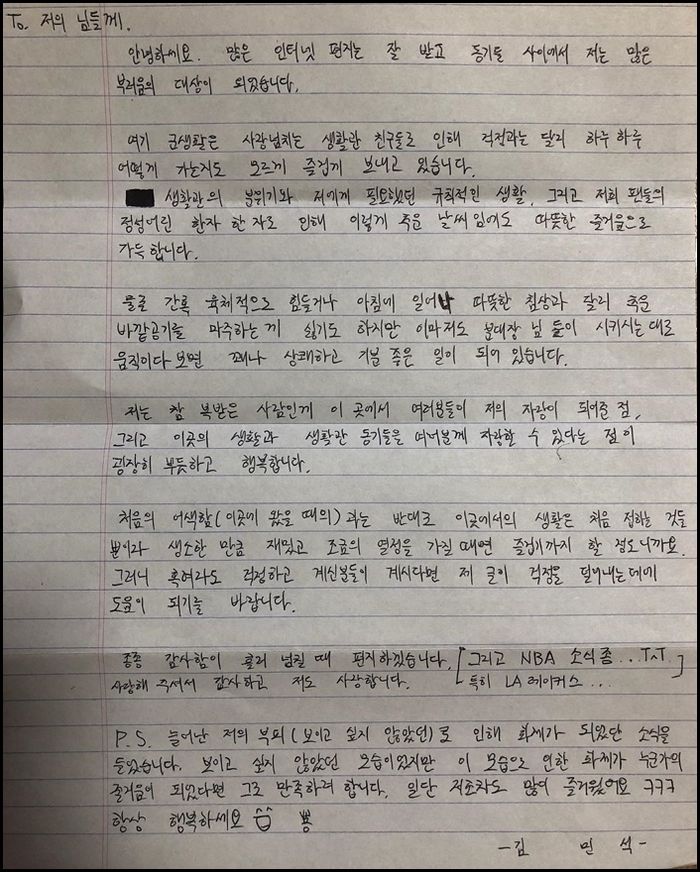 To. 저의 님들께.
안녕하세요. 많은 인터넷 편지는 잘 받고 동기들 사이에서 저는 많은
부러움의 대상이 되었습니다.
여기 군생활은 사랑넘치는 생활관 친구들로 인해 걱정과는 달리 하루 하루
어떻게 가는지도 모르게 즐겁게 보내고 있습니다.
생활관의 분위기와 저에게 필요했던 규칙적인 생활, 그리고 저희 팬들의
정성어린 한자 한 자로 인해 이렇게 추운 날씨임에도 따뜻한 즐거움으로
가득합니다.
물론 간혹 육체적으로 힘들거나 아침에 일어나 따뜻한 침상과 달리 추운
바깥공기를 마주하는 게 싫기도 하지만 이마저도 분대장 님 들이 시키시는 대로
움직이다 보면 꽤나 상쾌하고 기분 좋은 일이 되어 있습니다.
저는 참 복받은 사람인게 이 곳에서 여러분들이 저의 자랑이 되어준 점,
그리고 이곳의 생활과 생활관 동기들을 여러분께 자랑할 수 있다는 점이
굉장히 뿌듯하고 행복합니다.
처음의 어색함(이곳에 왔을 때의)과는 반대로 이곳에서의 생활은 처음 접하는 것들
뿐이라 생소한 만큼 재밌고 조금의 열정을 가질 때면 즐겁기까지 할 정도니까요.
그러니 혹여라도 걱정하고 계신분들이 계시다면 제 글이 걱정을 덜어내는데에
도움이 되기를 바랍니다.
종종 감사함이 흘러 넘칠 때 편지하겠습니다. [그리고 NBA 소식 좀... T^T
사랑해 주셔서 감사하고 저도 사랑합니다. 특히 LA 레이커스 ...]
P.S. 늘어난 저의 부피(보이고 싶지 않았던)로 인해 화제가 되었단 소식을
들었습니다. 보이고 싶지 않았던 모습이었지만 이 모습으로 인한 화제가 누군가의
즐거움이 되었다면 그로 만족하려 합니다. 일단 저조차도 많이 즐거웠어요 ㅋㅋㅋ
항상 행복하세요 뿅
-김 민 석-